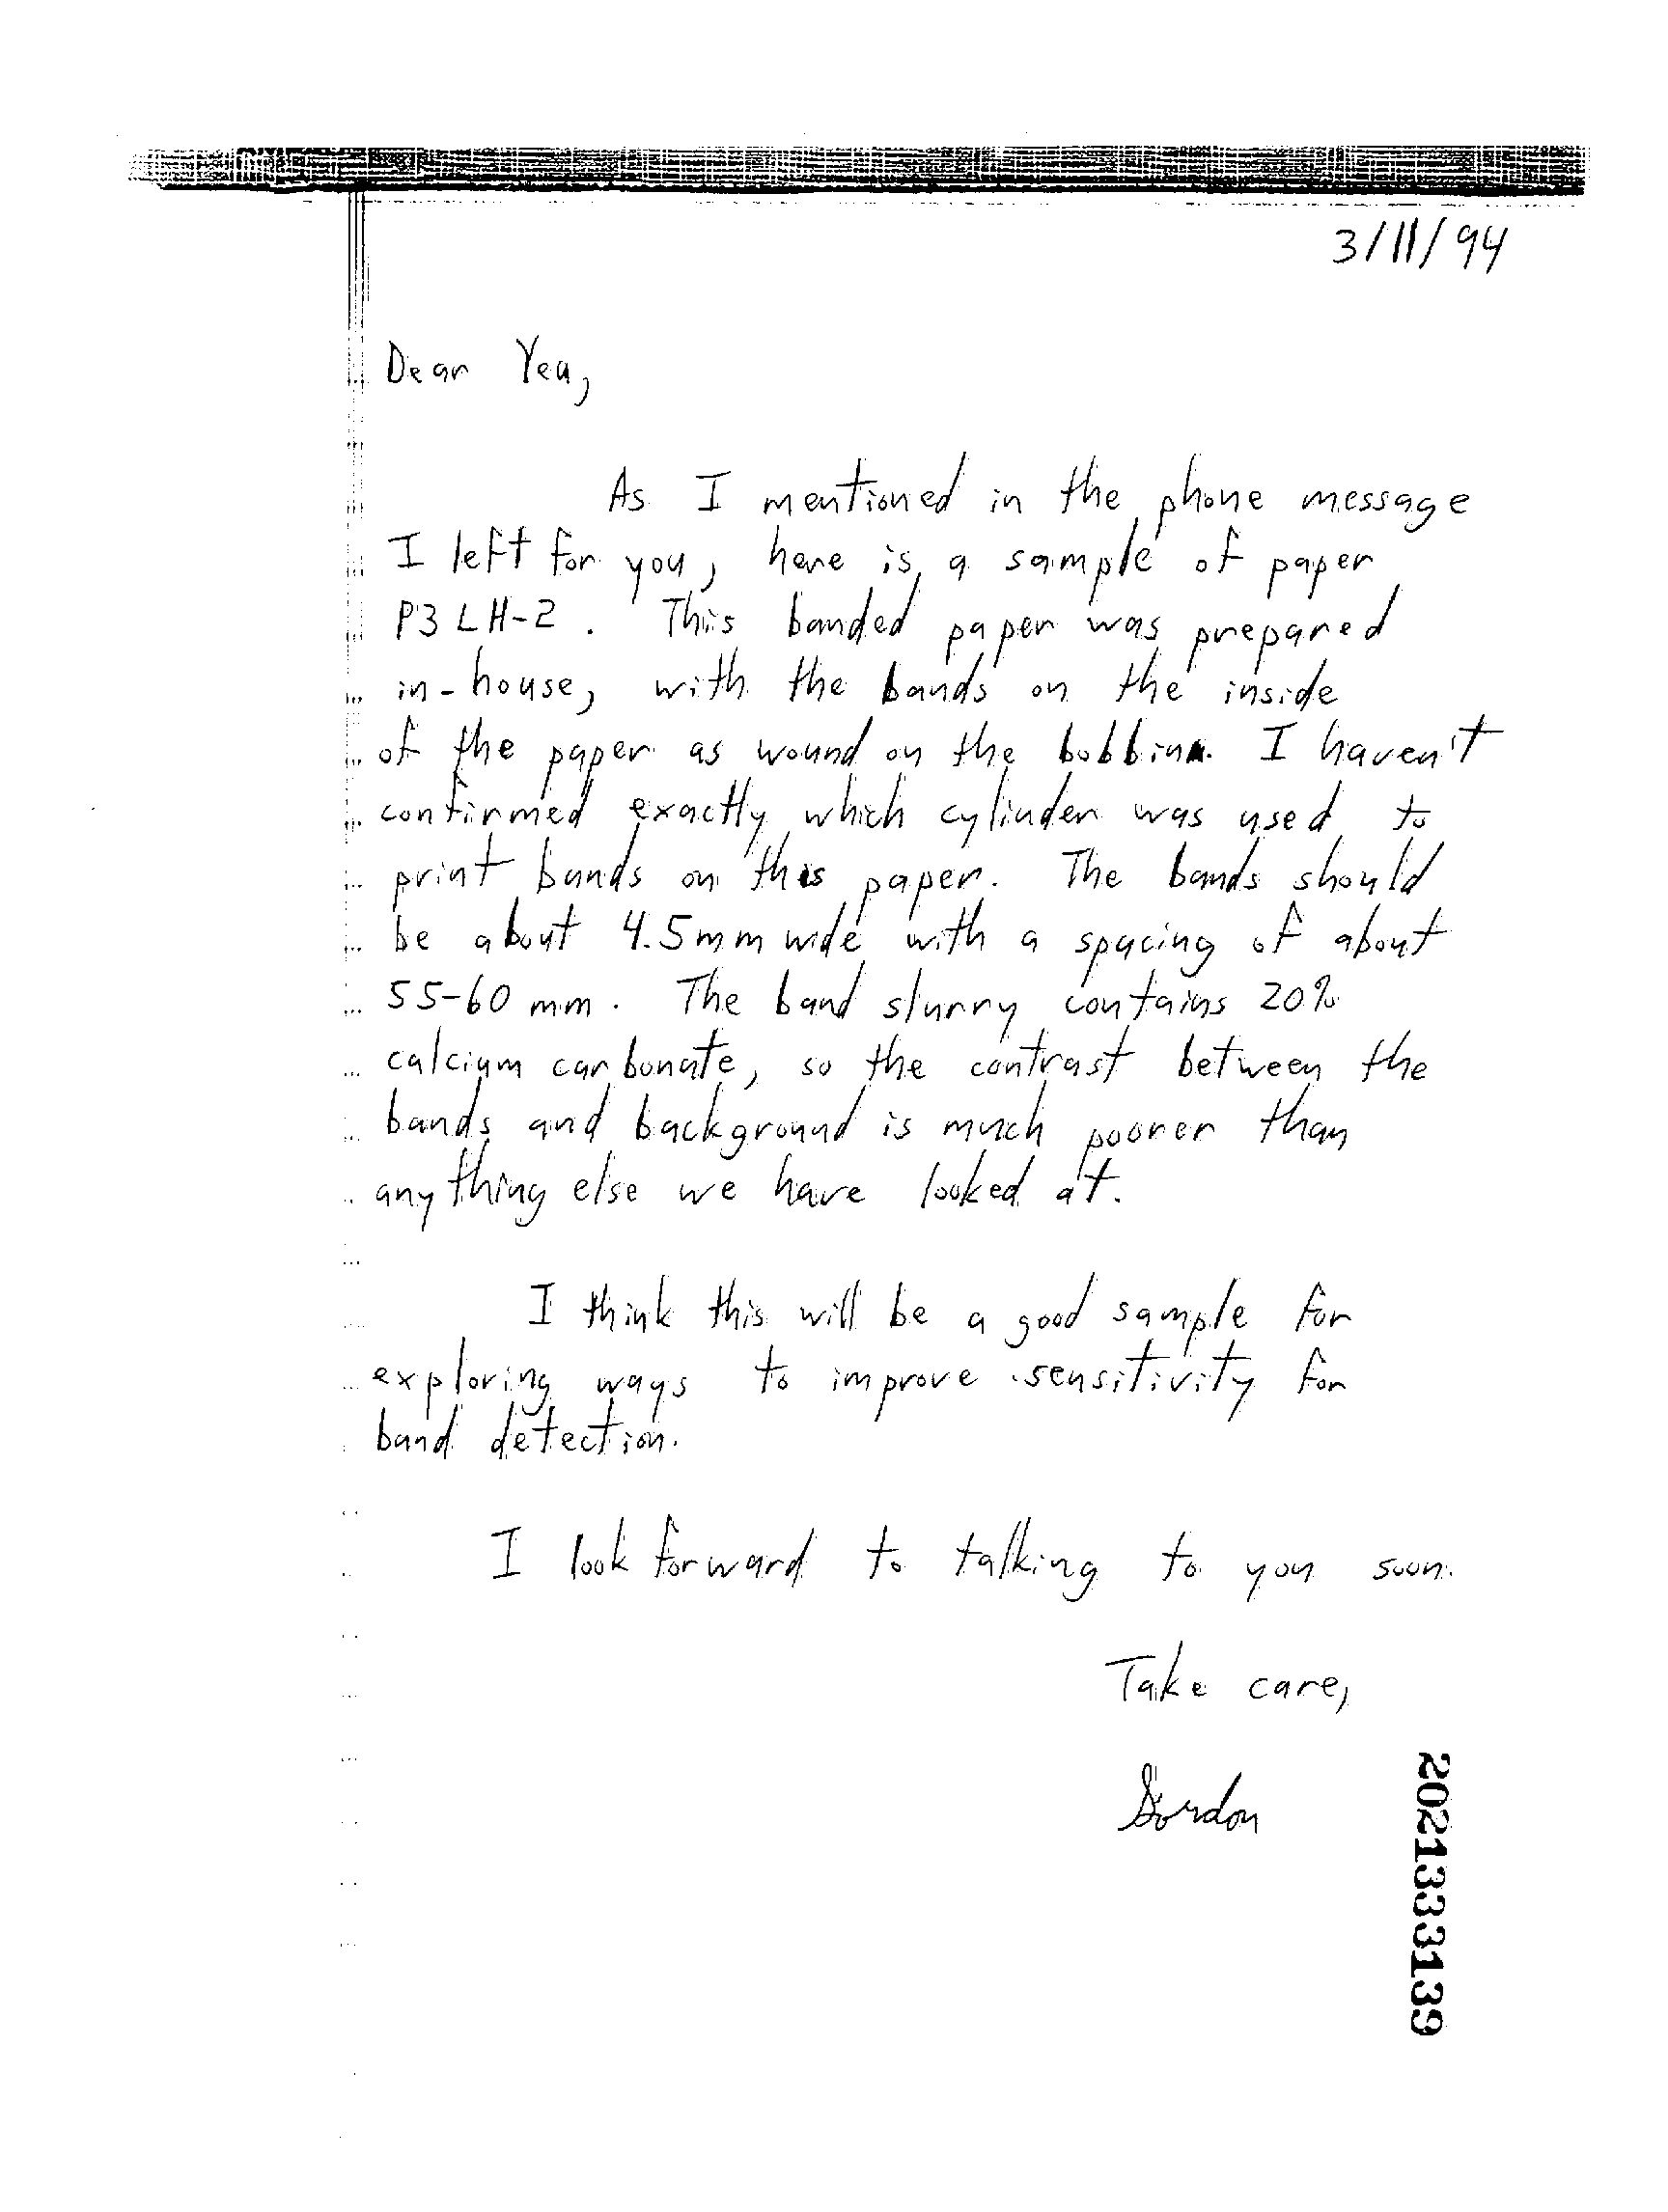 3/11/94
Dear Yea,
As I mentioned in the phone message
I left for you, here is a sample of paper
P3LH-2. This banded paper was prepared
in-house, with the bands on the inside
of the paper as wound on the bobbin. I haven't
confirmed exactly which cylinder was used to
print bands on this paper. The bands should
be about 4.5mm wide with a spacing of about
55-60 mm. The band slurry contains 20%
calcium carbonate, so the contrast between the
bands and background is much poorer than
anything else we have looked at.
I think this will be a good sample for
exploring ways to improve sensitivity for
band detection.
I look forward to talking to you soon.
Take care,
Gordon
2021333139